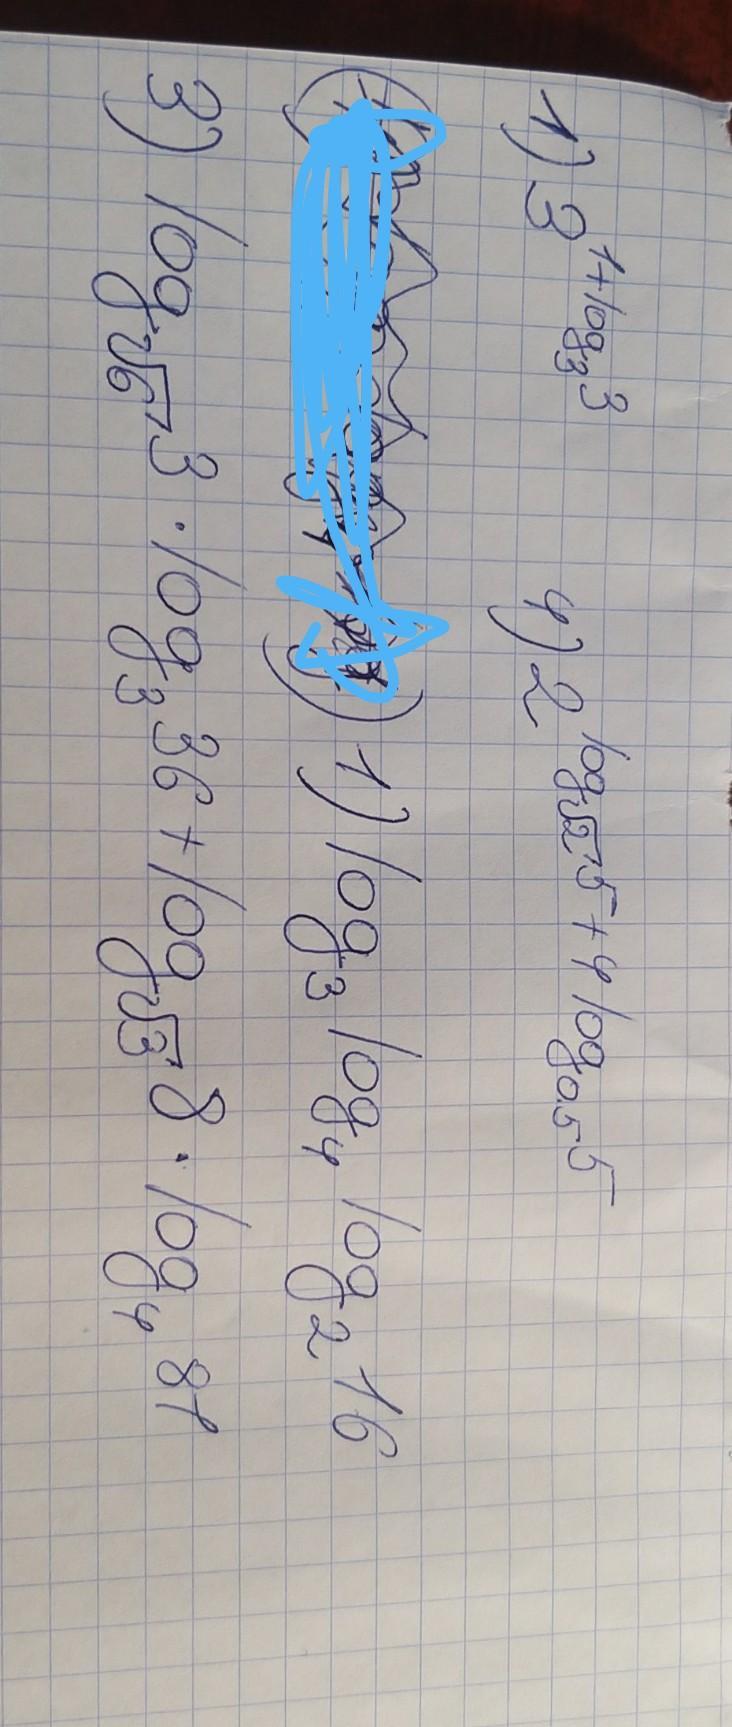 1) 3^{1+log_3 3} 4) 2^{log_{√2} 5 + 4 log_{0.5} 5}
1) log_3 log_4 log_2 16
3) log_{√6} 3 · log_3 36 + log_{√3} 8 · log_4 81